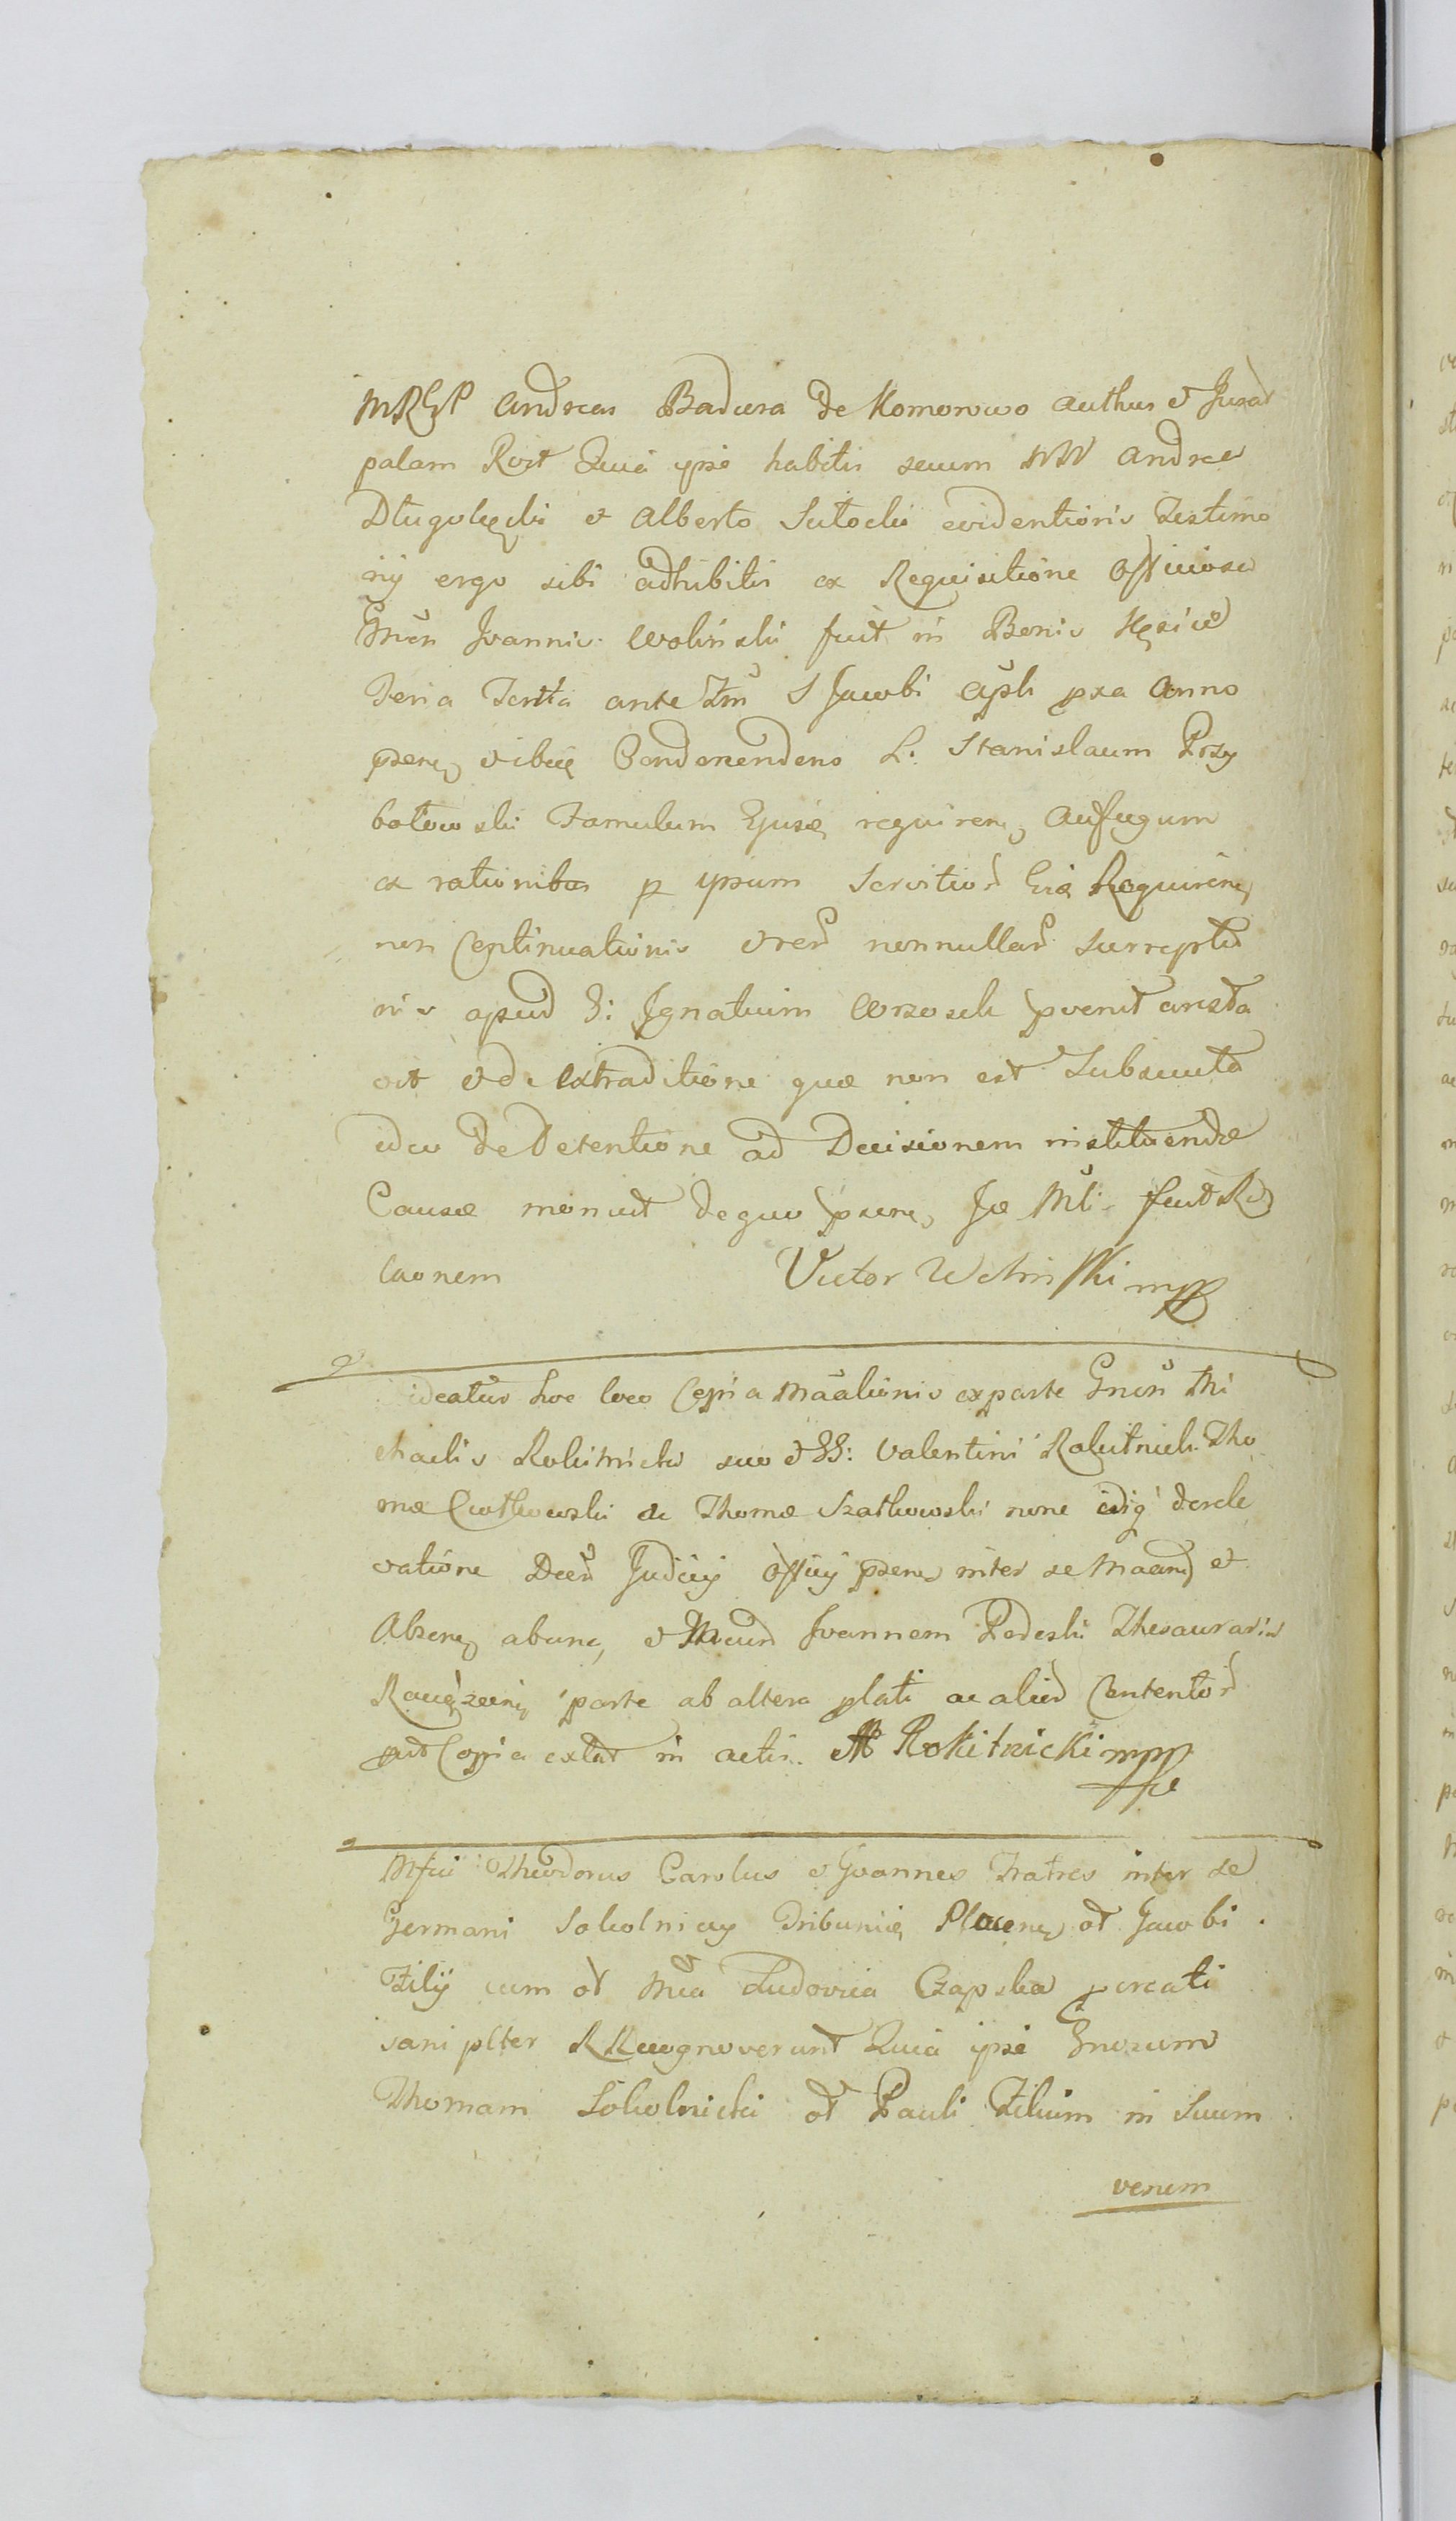 MRGP Andreas Badura de Komorowo authus et Jurat
palam Rvit Quia ipse habitis secum NN Andrea
Długołęcki et Alberto Sutocki evidentioris Testimo
nij ergo sibi adhibitis ex Requisitione Officiosa
Gnosi Joannis Woliński fuit in Bonis
Feria Tertia ante Ftm S Jacobi Apli pxa Anno
psenti et ibiq Condescendens L. Stanislaum Przy
batowski Famulum Ejusd requiren, Aufugum
ex rationibus p ipsum Servitior Gsi Requiren,
non Continuationis et rerum nonnullar surreptio
nis apud G: Ignatium Wrzosek pvenit aresta
vit et de Extraditione quæ non est Subsecuta
ideo de Detentione ad Decisionem instituendæ
Causæ monuit de quo psens Jæ Mli fecit Re
laonem Victor Woliński mpp
ideatur hoc loco Copia Maalionis ex parte Gnosi Mi
chaelis Rokitnicki suo et GG: Valentini Rokitnicki Tho
mæ Cwtkowski ac Thomæ Szatkowski nune
vatione Decr Judicij Officij psen inter se Maan et
Absen, abunc, et Mcum Joannem Pedeski Thesaurariu
parte ab altera plati ac aliud Contentor
put Copia extat in actis. M Rokitnicki mpp
Mfci Theodorus Carolus et Joannes Fratres inter se
Germani Sokolnicy Tribunii, Plocen, ol Jacobi
Filij cum ol Mca Ludovica Czapska pcreati
sani plter RRecognoverunt Quia ipsi Gnosum
Thomam Sokolnicki ol Pauli Filium in Suum
verum